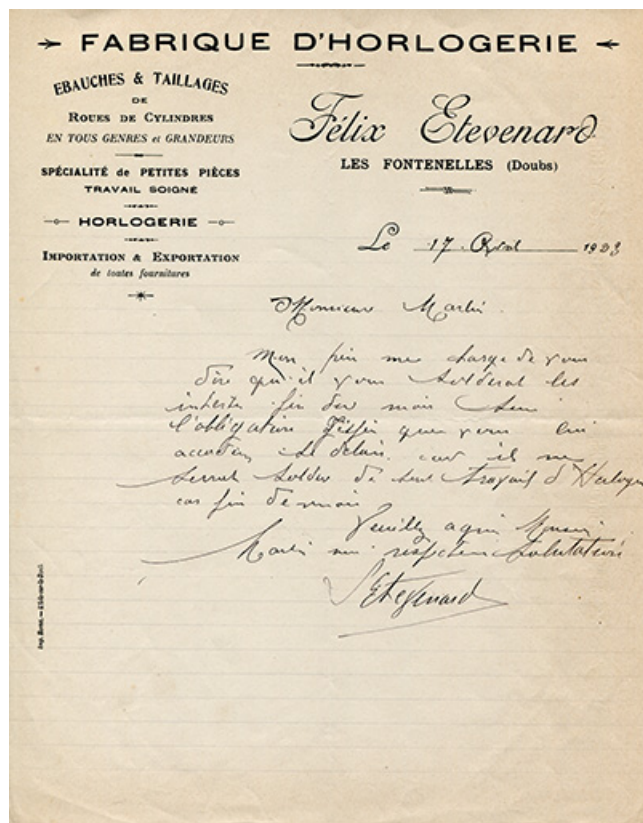 FABRIQUE D'HORLOGERIE
EBAUCHES & TAILLAGES
DE
ROUES DE CYLINDRES
EN TOUS GENRES et GRANDEURS
SPÉCIALITÉ de PETITES PIÈCES
TRAVAIL SOIGNÉ
HORLOGERIE
IMPORTATION & EXPORTATION
de toutes fournitures
Félix Etevenard
LES FONTENELLES (Doubs)
Le 17 Avril 1923
Monsieur Martin
Mon me charge de vous
dire qu'il vous solderat les
fin du mois
l'obligation que vous lui
le delais car il me
serrat solder de travail d'
fin de mois
Veuillez agréer
salutations
Etevenard